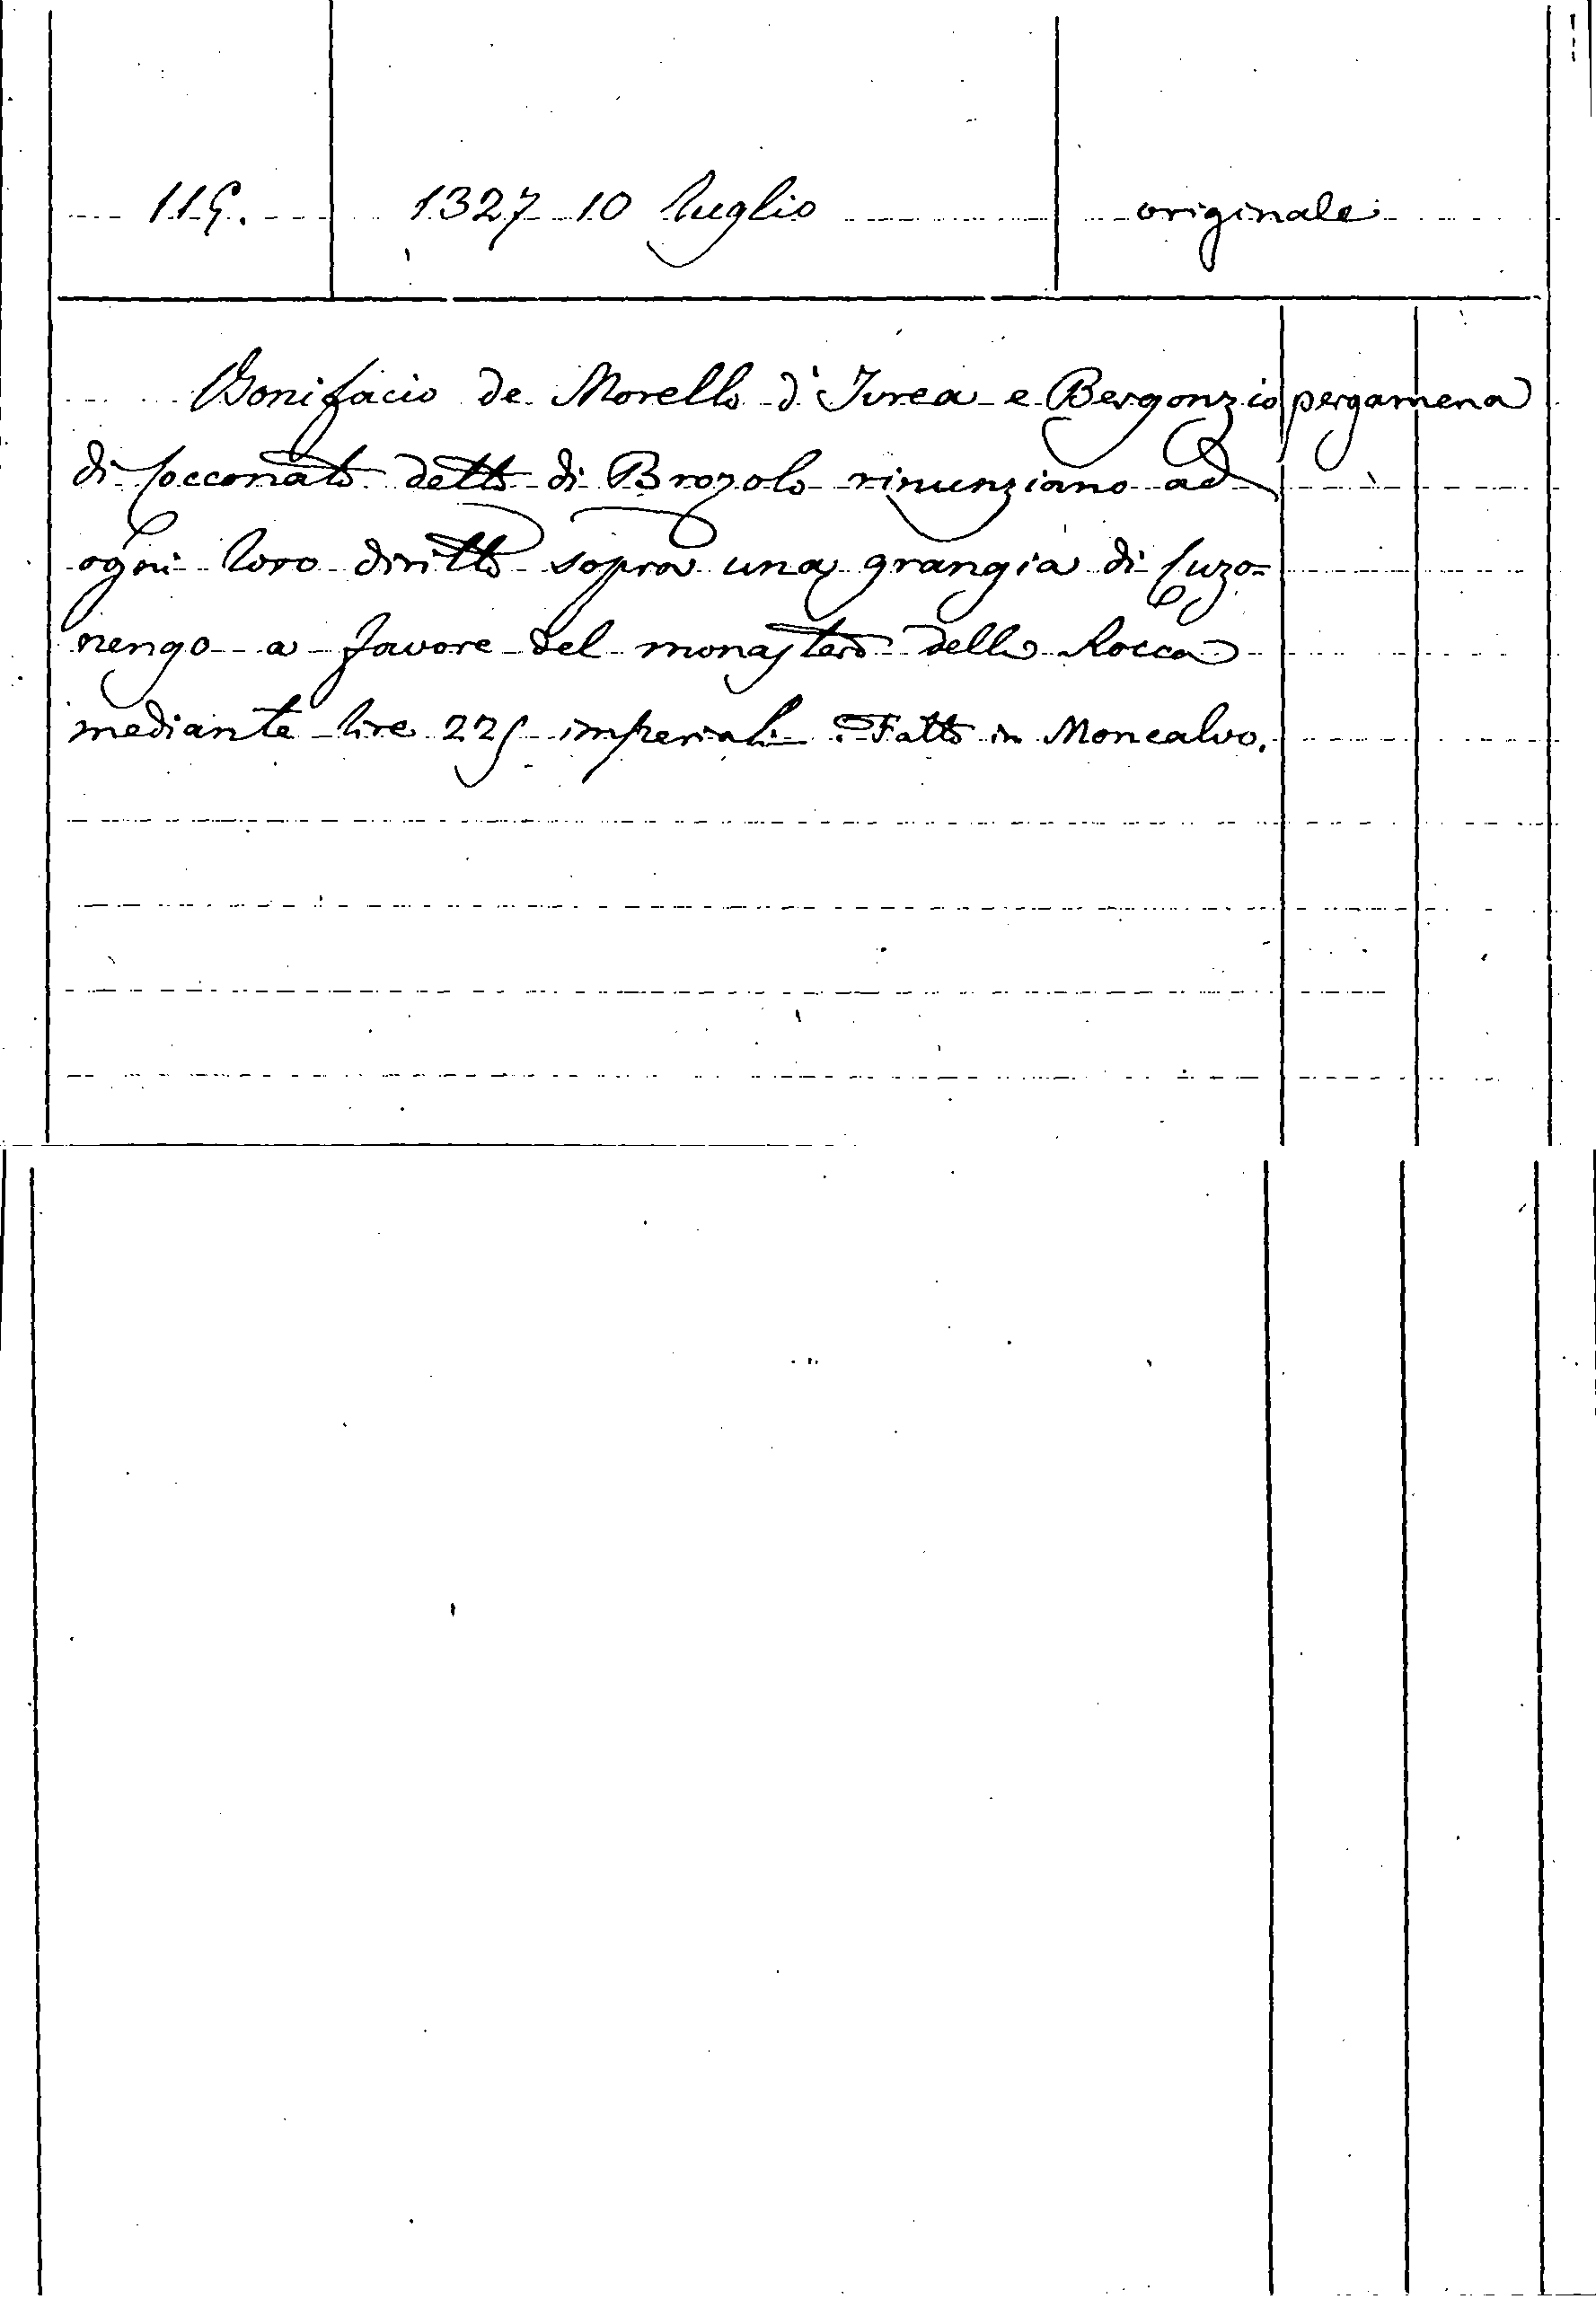 115. 1327 10 luglio originale
Bonifacio de Morello d'Ivrea e Bergonzio pergamena
di Cocconato detto di Brozolo rinunziano ad
ogni loro diritto sopra una grangia di Cuzo=
nengo a favore del monastero della Rocca
mediante lire 225 imperiali. Fatto in Moncalvo.